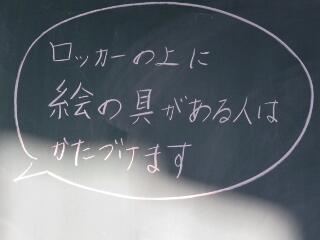 ロッカーの上に
絵の具がある人は
かたづけます